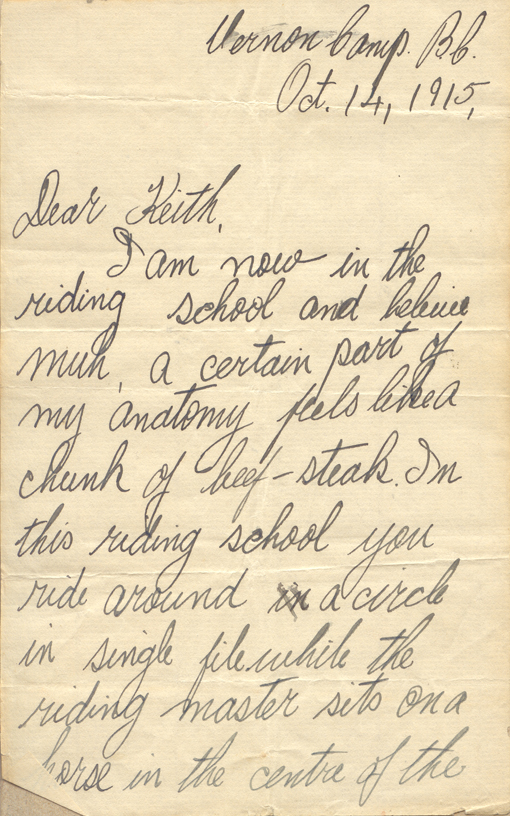 Vernon Camp. B.C.
Oct. 14, 1915,
Dear Keith,
I am now in the
riding school and believe
muh, a certain part of
my anatomy feels like a
chunk of beef-steak. In
this riding school you
ride around in a circle
in single file while the
riding master sits on a
horse in the centre of the